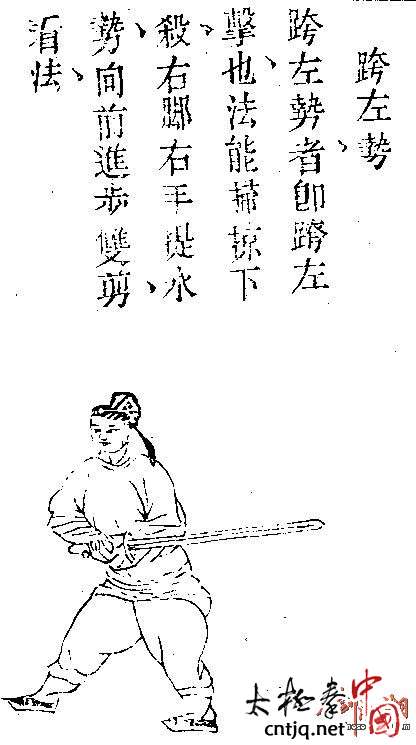 跨左勢
跨左勢者、即跨左
擊也、法能掃掠下
殺、右脚右手提水
勢、向前進步雙剪、
看法、
太極拳
中國
cntjq.net